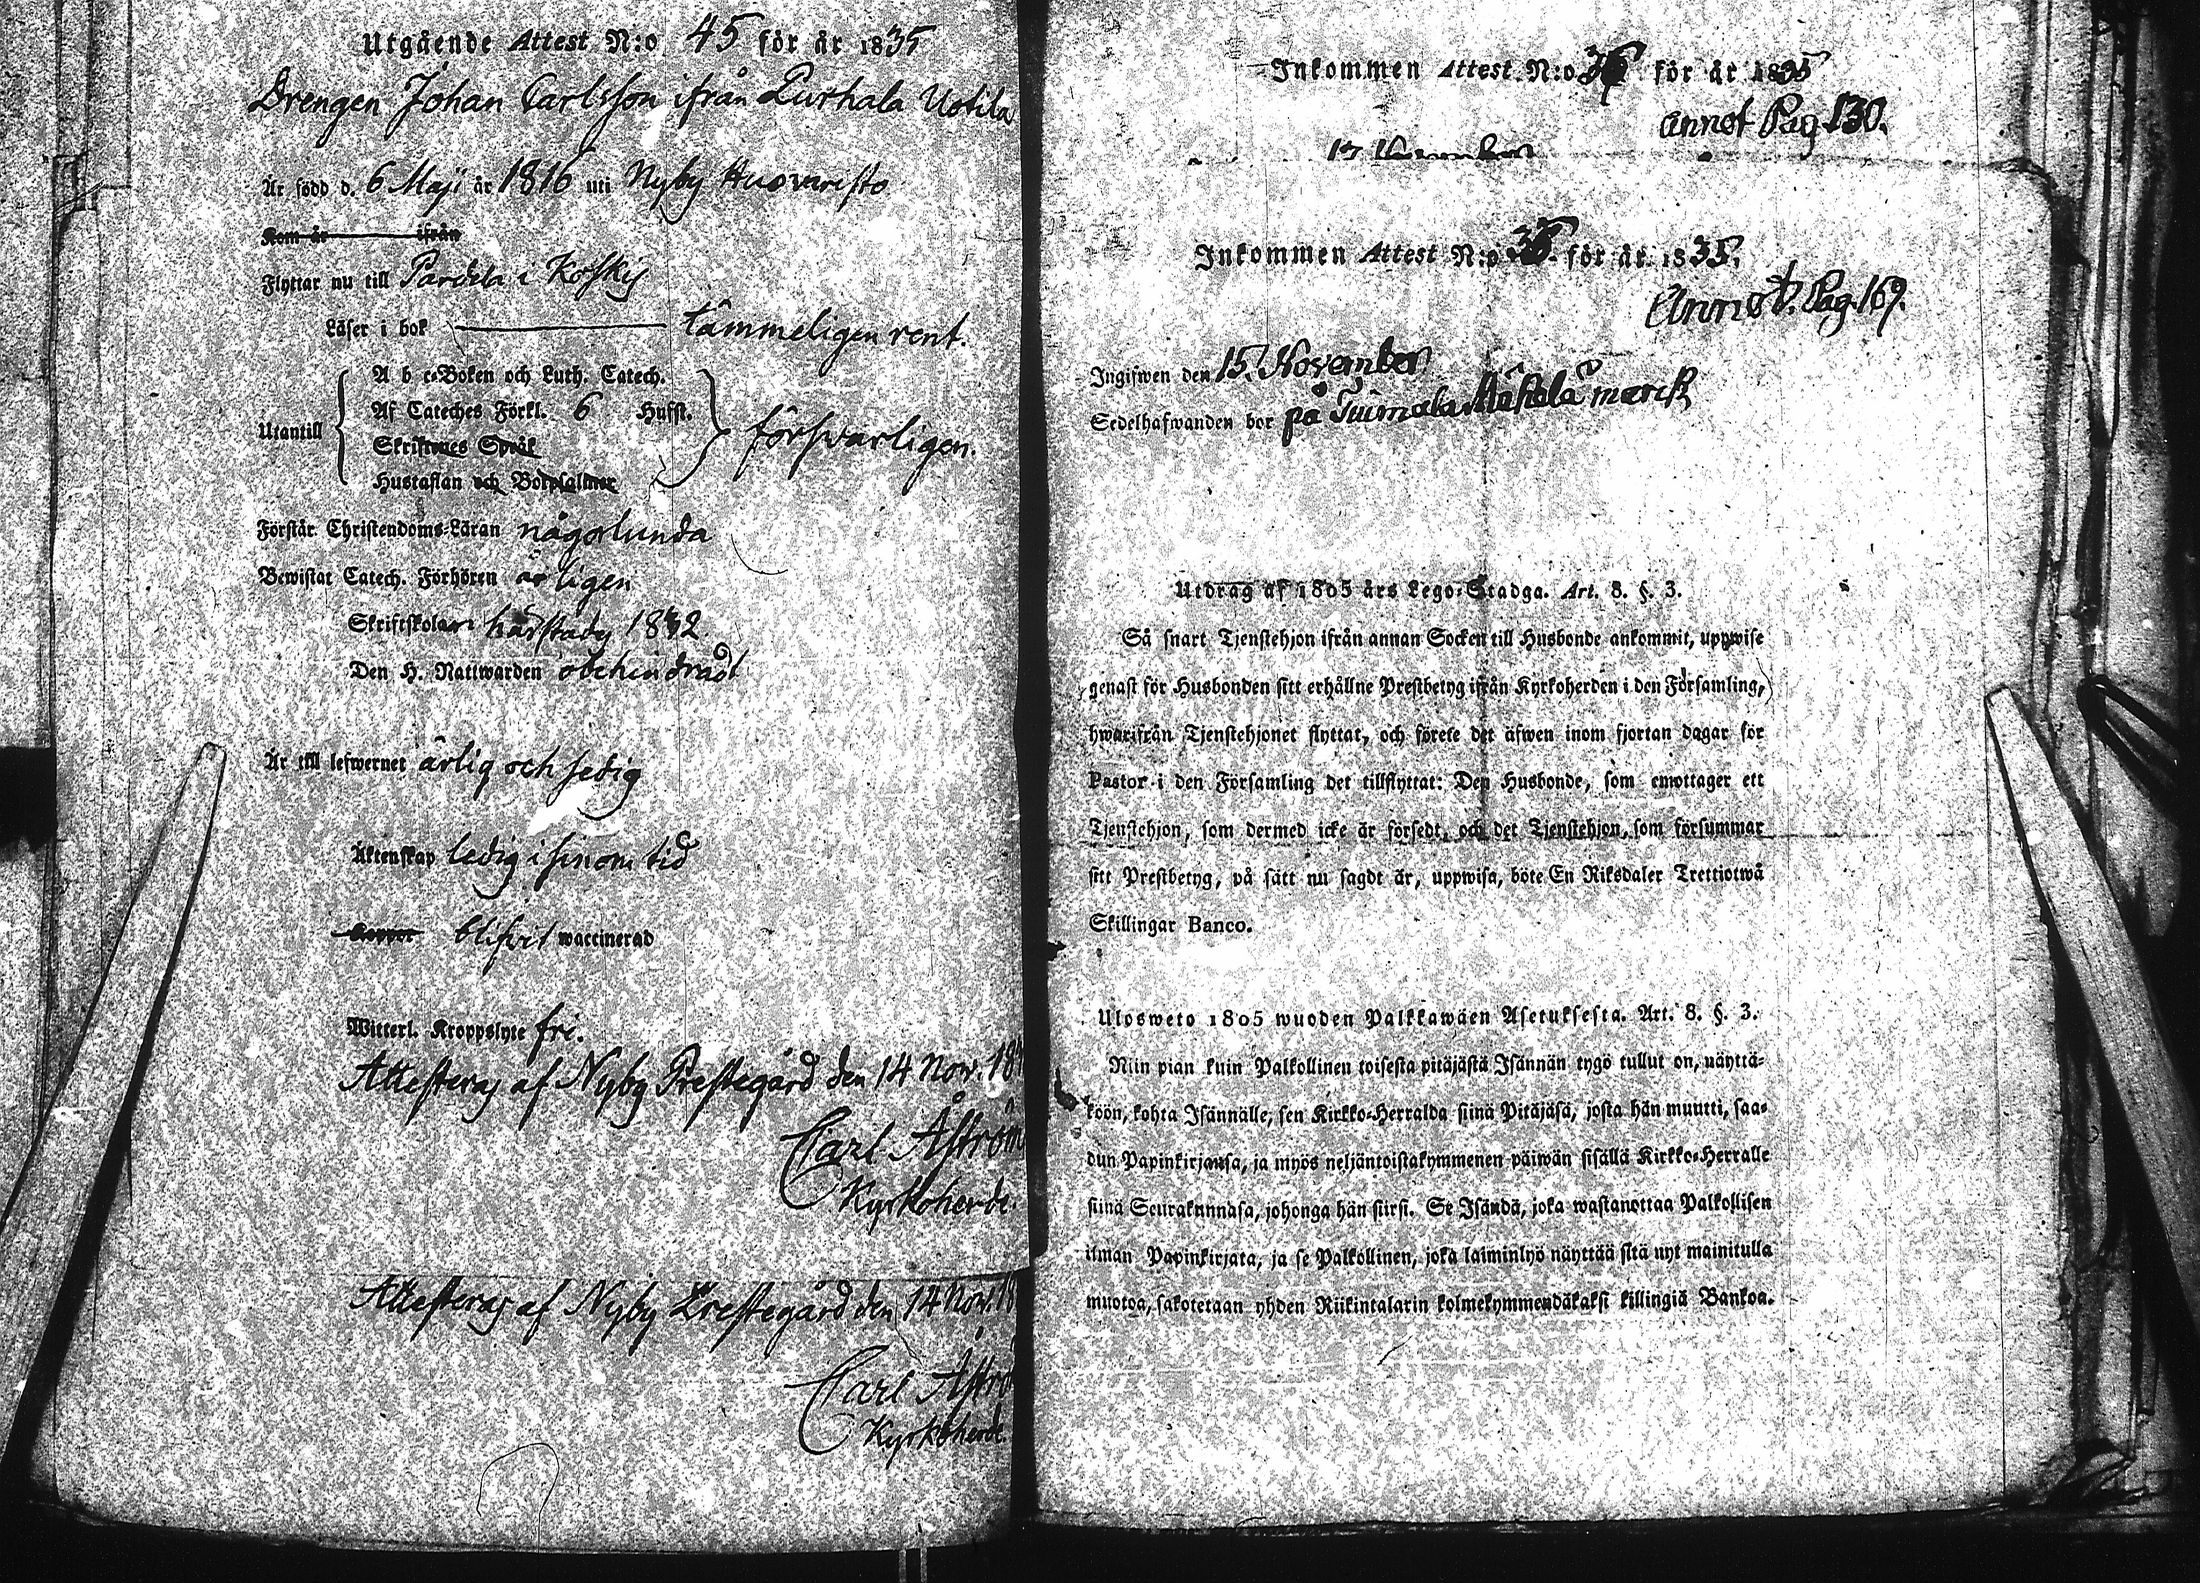 Utgående Attest N:o 45 för år 1835
Drengen Johan Carlsson ifrån Purhala Uotila
Är född d. 6 Maji år 1816 uti Nyby Huovaristo
Kom år ifrån
Flyttar nu till Pardela i Koskis
Läser i bok tämmeligen rent.
Utantill
A b c-Boken och Luth. Catech.
Af Cateches Förkl. 6 Hufst.
Skriftenes Språk
Hustaflan och Botpsalmer
försvarligen.
Förstår Christendoms-Läran någorlunda
Bewistat Catech. Förhören årligen
Skriftskolan härstädes 1832.
Den H. Nattwarden obehindradt
Är till lefwernet ärlig och sedig
Äktenskap ledig i sin om tid
Koppor blifvit waccinerad
Witterl. Kroppslyte fri.
Attesteras af Nyby Prestegård den 14 Nov. 18
Carl Åström
Kyrkoherde.
Attesteras af Nyby Prestegård den 14 Nov. 1
Carl Åströ
Kyrkoherde.
Inkommen Attest N:o 36 för år 1835
Annot Pag 130.
Inkommen Attest N:o 36. för år 1835.
Annot. Pag. 169.
Ingifwen den 15. November
Sedelhafwanden bor på Tuimala marck
Utdrag af 1805 års Lego-Stadga. Art. 8. §. 3.
Så snart Tjenstehjon ifrån annan Socken till Husbonde ankommit, uppwise
genast för Husbonden sitt erhållne Prestbetyg ifrån Kyrkoherden i den Församling,
hwarifrån Tjenstehjonet flyttat, och förete det äfwen inom fjortan dagar för
Pastor i den Församling det tillflyttat: Den Husbonde, som emottager ett
Tjenstehjon, som dermed icke är försedt, och det Tjenstehjon, som försummar
sitt Prestbetyg, på sätt nu sagdt är, uppwisa, böte En Riksdaler Trettiotwå
Skillingar Banco.
Ulosweto 1805 wuoden Palkkawäen Asetuksesta. Art. 8. §. 3.
Niin pian kuin Palkollinen toisesta pitäjästä Isännän tygö tullut on, näyttä-
köön, kohta Isännälle, sen Kirkko-Herralda siinä Pitäjäsä, josta hän muutti, saa-
dun Papinkirjansa, ja myös neljäntoistakymmenen päiwän sisällä Kirkko-Herralle
siinä Seurakunnasa, johonga hän siirsi. Se Isändä, joka wastanottaa Palkollisen
ilman Papinkirjata, ja se Palkollinen, joka laiminlyö näyttää sitä nyt mainitulla
muotoa, sakotetaan yhden Riikintalarin kolmekymmendäkaksi killingiä Bankoa.